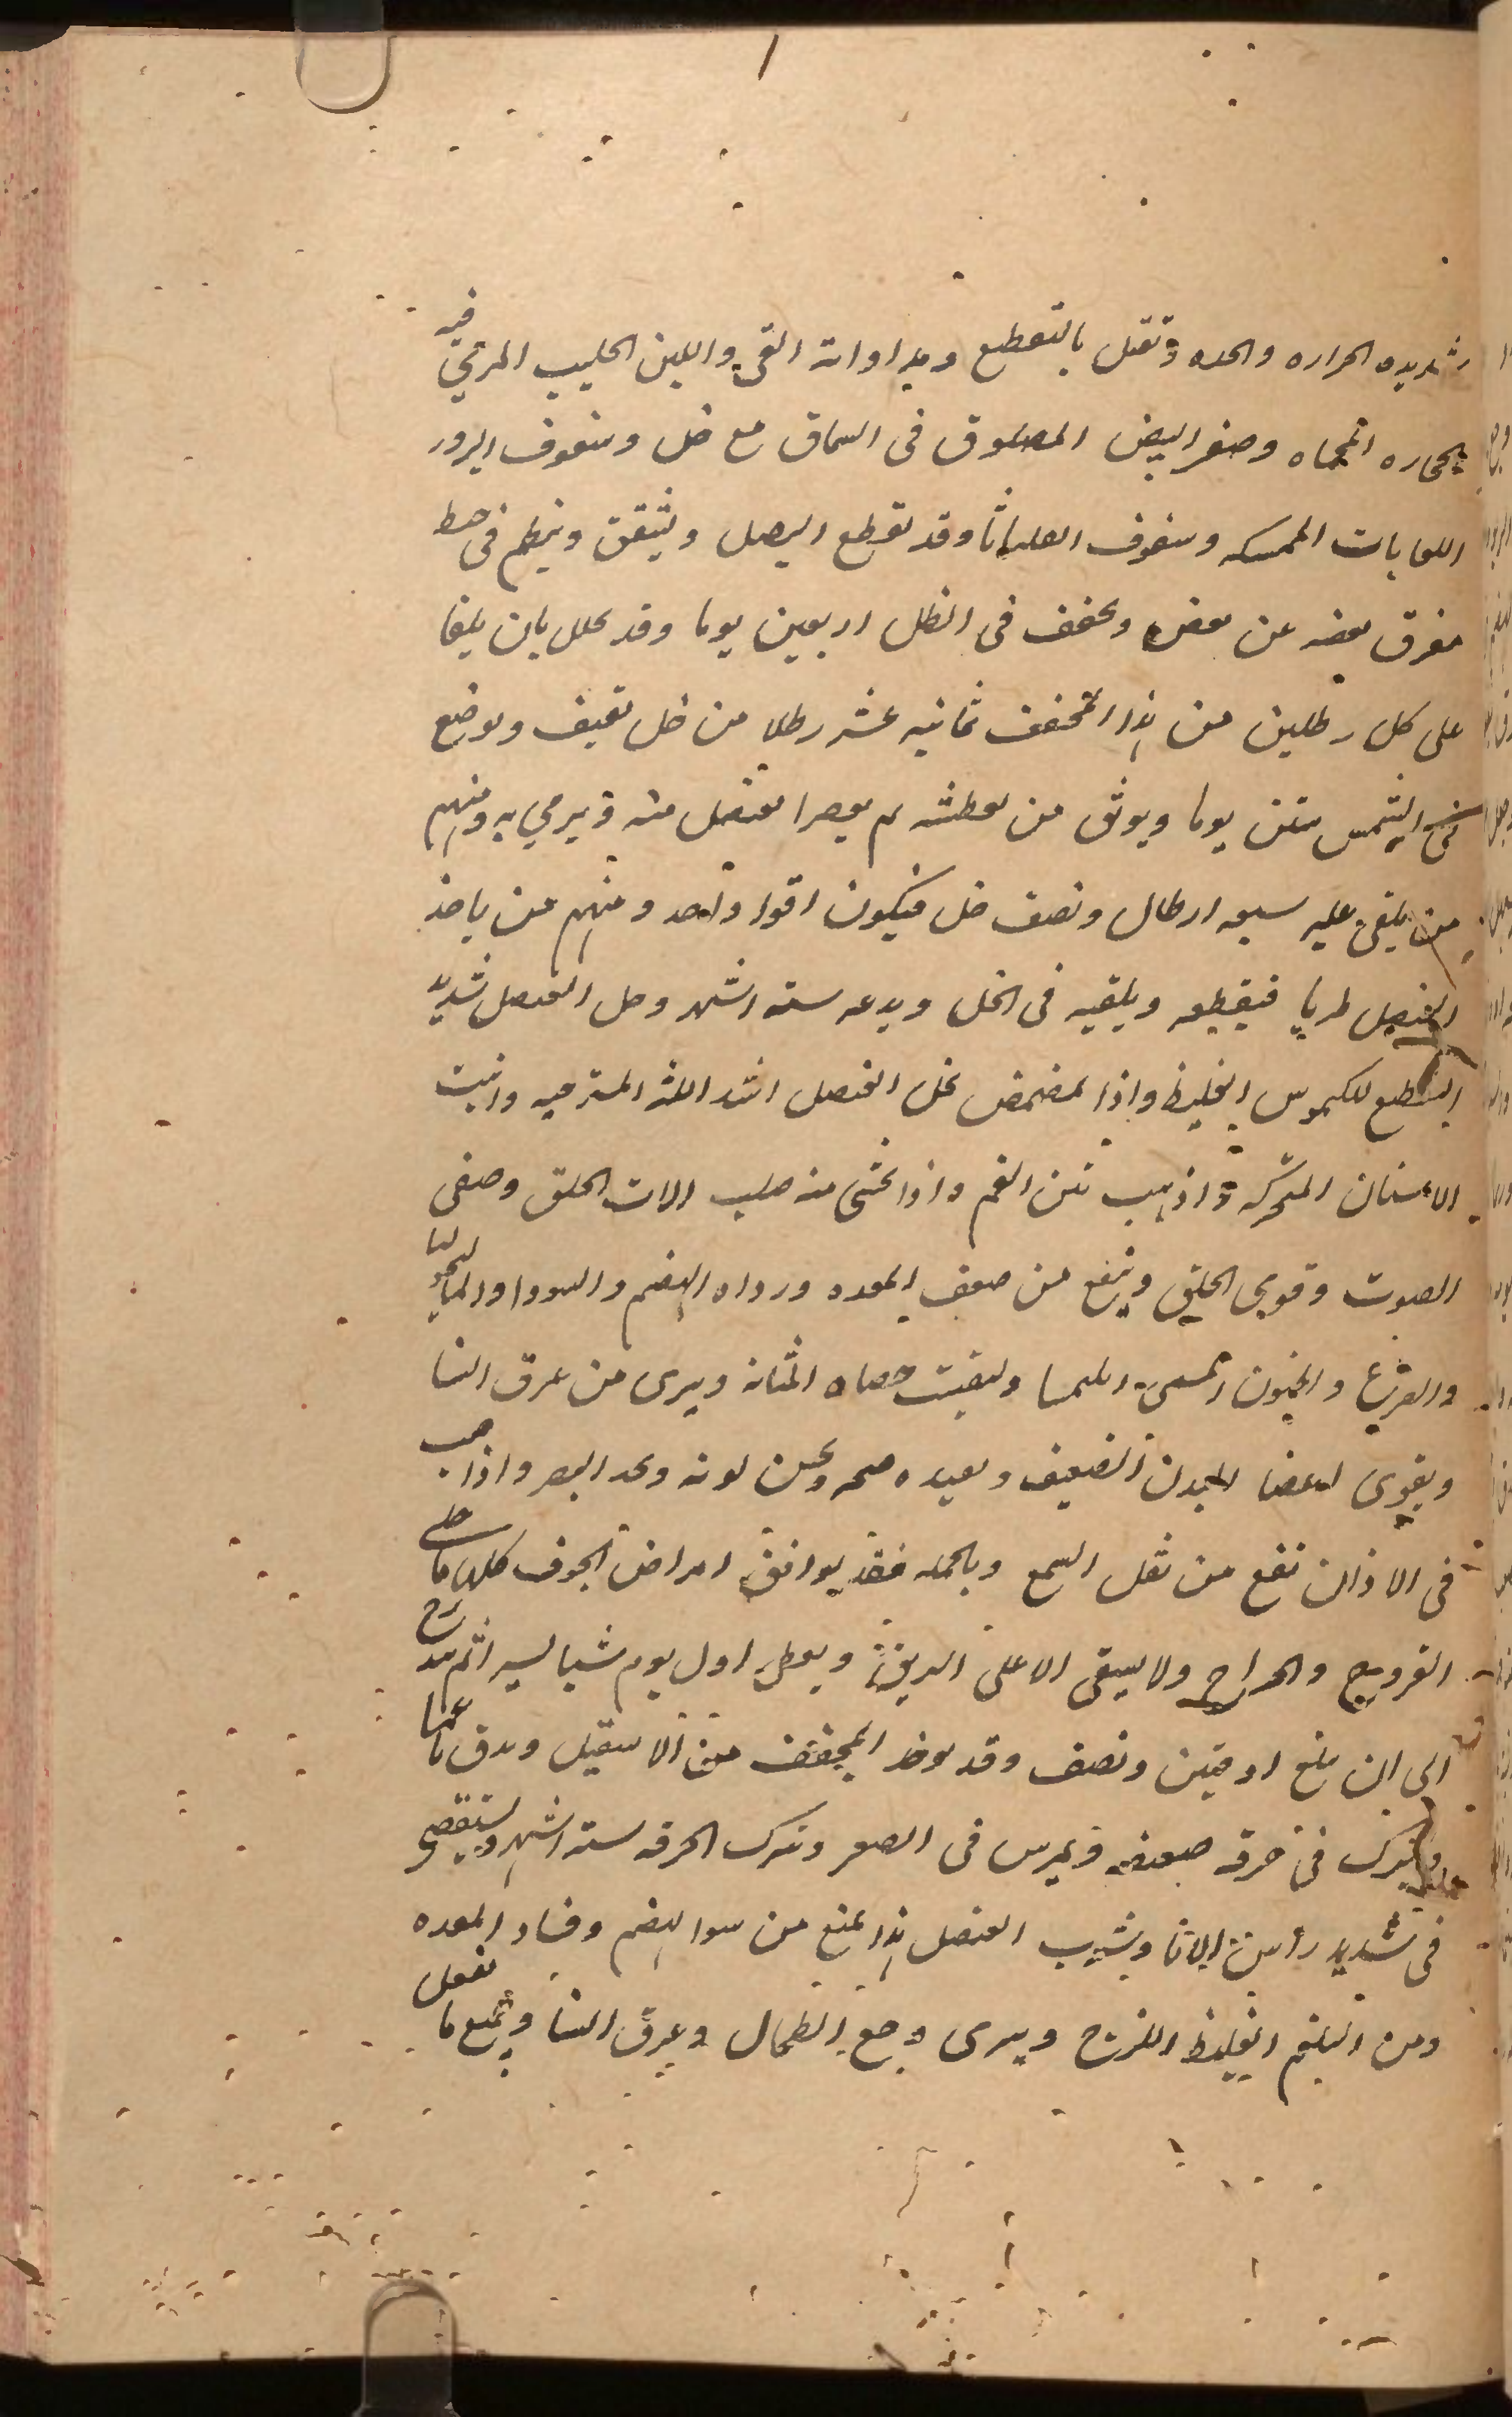 شديده الحراره والحده وتقتل بالتقطيع ومداواته القي واللبن الحليب المرمي فيه
الحجاره المحماه وصفر البيض المصلوق فى السماق مع خل وسفوف البزور
اللعابات الممسكه وسفوف وقد يقطع البصل ويشقق وينظم فى خيط
مفرق بعضه عن بعض ويجفف فى الظل اربعين يوما وقد يخلل بان يلقا
على كل رطلين من هذا المجفف ثمانيه عشر رطلا من خل ثقيف ويوضع
فى الشمس ستين يوما ويوثق من تغطيته ثم يعصر العنصل منه ويرمي به ومنهم
من يلقى عليه سبعه ارطال ونصف خل فيكون اقوا واحد ومنهم من ياخذ
العنصل طريا فيقطعه ويلقيه فى الخل ويدعه سته اشهر وخل العنصل شديد
التقطيع للكيموس الغليظ واذا تمضمض بخل العنصل اشد اللثه المسترخيه واثبت
الاسنان المتحركه واذهب نتن الفم واذا تحسى منه صلب الات الحلق وصفى
الصوت وقوى الحلق وينفع من ضعف المعده ورداه الهضم والسودا والماليخوليا
والصرع والجنون ويفتت حصاه المثانه ويبرى من عرق النسا
ويقوى اعضا البدن الضعيف ويعيده صحه ويحسن لونه ويحد البصر واذا صب
فى الاذان نفع من ثقل السمع وبالجمله فقد يوافق امراض الجوف كلها ما خلى
القروح والجراح ولا يسقى الا على الريق ويعطى اول يوم شيا يسيرا ثم يدرج
الى ان يبلغ اوقيتين ونصف وقد يوخذ المجفف من الاسقيل ويدق ناعما
ويترك فى خرقه ضعيفه ويمرس فى العصير وتترك الخرقه سته اشهر ويستقصى
فى شديد رأس الانا وشرب العنصل هذا يمنع من سوا الهضم وفساد المعده
ومن البلغم الغليظ اللزج ويبرى وجع الطحال وعرق النسا وجميع ما تفعل